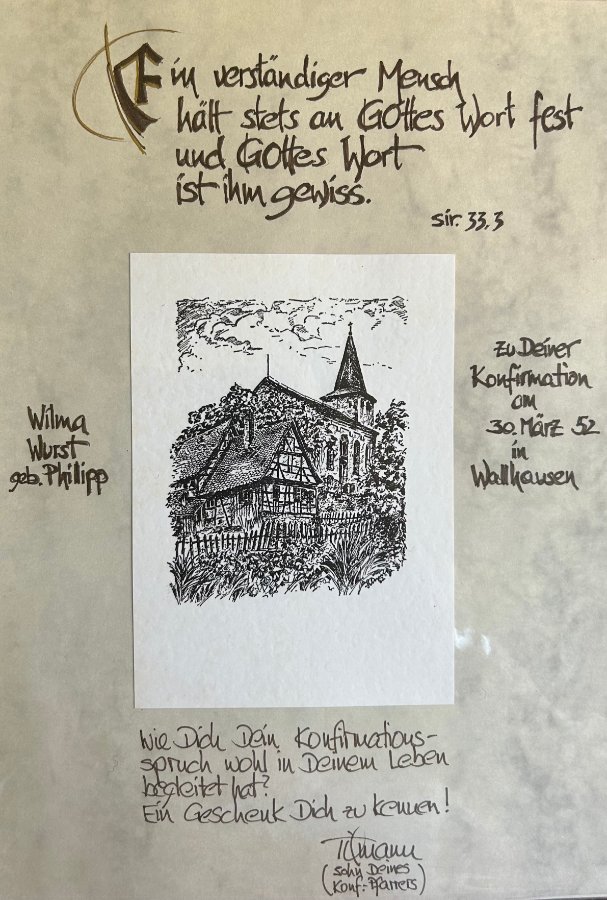 Ein verständiger Mensch
hält stets an Gottes Wort fest
und Gottes Wort
ist ihm gewiss.
Sir. 33,3
Wilma
Wurst
geb. Philipp
zu Deiner
Konfirmation
am
30. März 52
in
Wallhausen
Wie Dich Dein Konfirmations-
spruch wohl in Deinem Leben
begleitet hat?
Ein Geschenk Dich zu kennen!
(Sohn Deines
Konf.-Pfarrers)